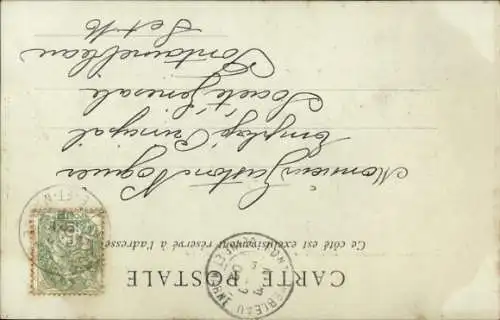 CARTE POSTALE
Ce côté est exclusivement réservé à l'adresse
Monsieur Gaston Noguier
Employé Principal
Société Générale
Fontainebleau
S et M